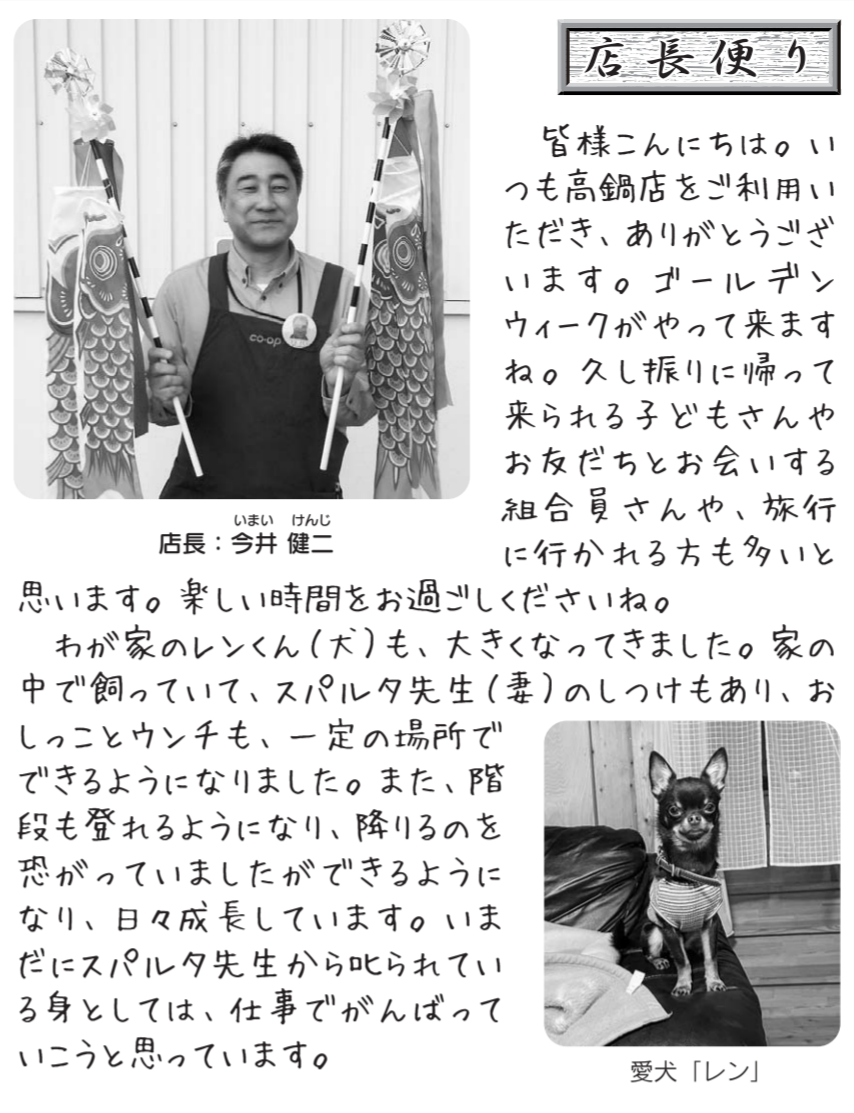 店長便り
皆様こんにちは。い
つも高鍋店をご利用い
ただき、ありがとうござ
います。ゴールデン
ウィークがやって来ます
ね。久し振りに帰って
来られる子どもさんや
お友だちとお会いする
組合員さんや、旅行
に行かれる方も多いと
co-op
いまい けんじ
店長：今井 健二
思います。楽しい時間をお過ごしくださいね。
わが家のレンくん(犬)も、大きくなってきました。家の
中で飼っていて、スパルタ先生(妻)のしつけもあり、お
しっことウンチも、一定の場所で
できるようになりました。また、階
段も登れるようになり、降りるのを
恐がっていましたができるように
なり、日々成長しています。いま
だにスパルタ先生から叱られてい
る身としては、仕事でがんばって
いこうと思っています。
愛犬「レン」